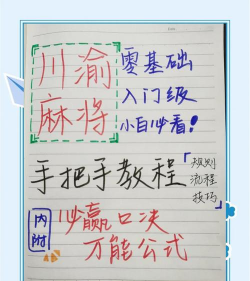 川渝
麻将
零基础
入门级
小白必看!
手把手教程
规则
流程
技巧
内附
必赢口决
万能公式